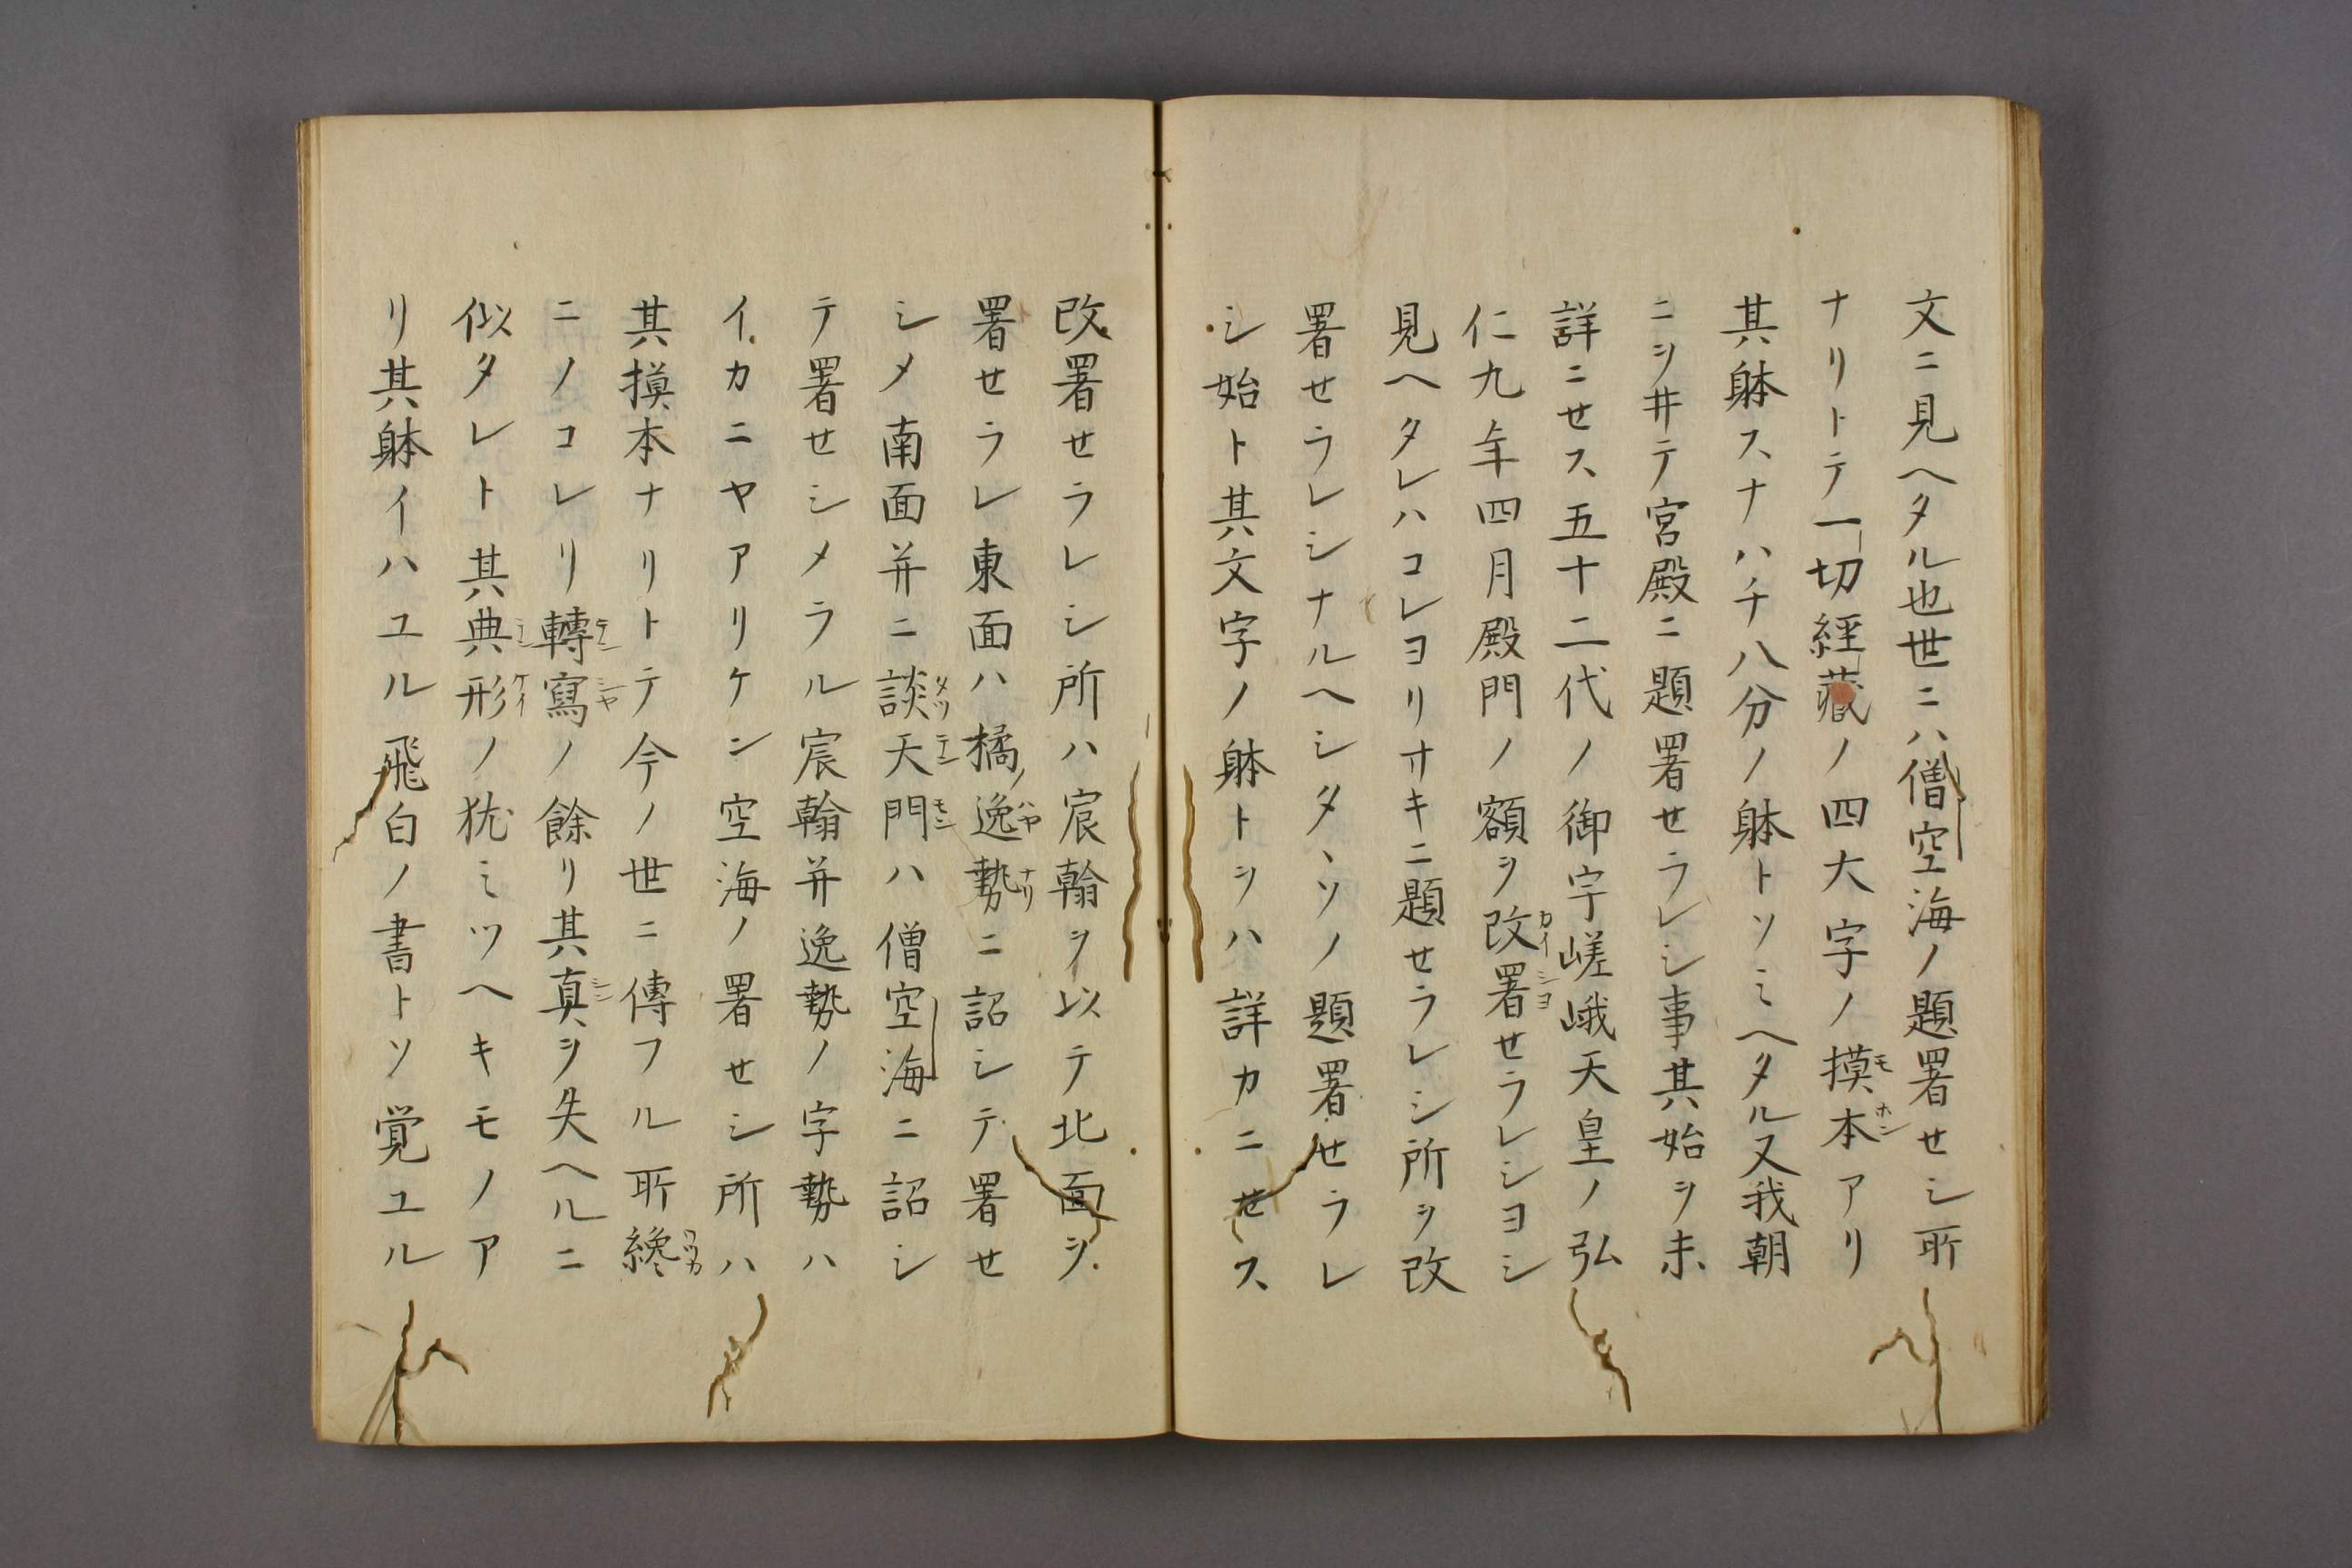 文ニ見ヘタル也世ニハ僧空海ノ題署せシ所
ナリトテ一切経藏ノ四大字ノ摸本アリ
其躰スナハチ八分ノ躰トソミヘタル又我朝
ニヲ井テ宮殿ニ題署せラレシ事其始ヲ未
詳ニせス五十二代ノ御宇嵯峨天皇ノ弘
仁九年四月殿門ノ額ヲ改署せラレシヨシ
見ヘタレハコレヨリサキニ題せラレシ所ヲ改
署せラレシナルヘシタヽソノ題署せラレ
シ始ト其文字ノ躰トヲハ詳カニせス
改署せラレシ所ハ宸翰ヲ以テ北面ヲ
署せラレ東面ハ橘ノ逸勢ニ詔シテ署せ
シメ南面并ニ談天門ハ僧空海ニ詔シ
テ署せシメラル宸翰并逸勢ノ字勢ハ
イカニヤアリケン空海ノ署せシ所ハ
其摸本ナリトテ今ノ世ニ傳フル所纔
ニノコレリ轉寫ノ餘リ其真ヲ失ヘルニ
似タレト其典形ノ猶ミツヘキモノア
リ其躰イハユル飛白ノ書トソ覚ユル